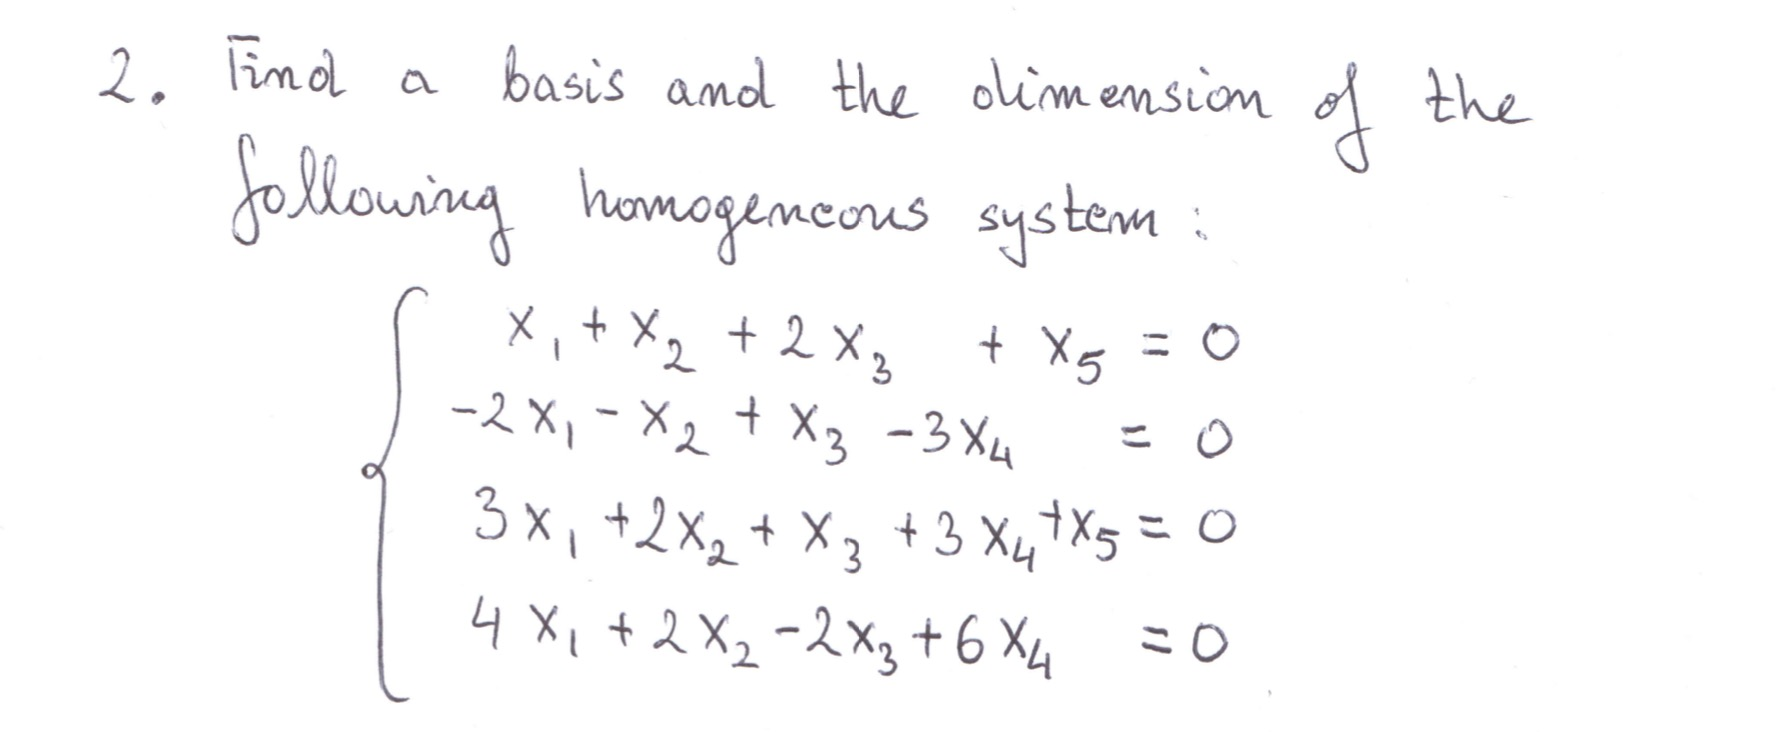 2. Find a basis and the dimension of the
following homogeneous system:
x₁ + x₂ + 2x₃ + x₅ = 0
-2x₁ - x₂ + x₃ - 3x₄ = 0
3x₁ + 2x₂ + x₃ + 3x₄ + x₅ = 0
4x₁ + 2x₂ - 2x₃ + 6x₄ = 0